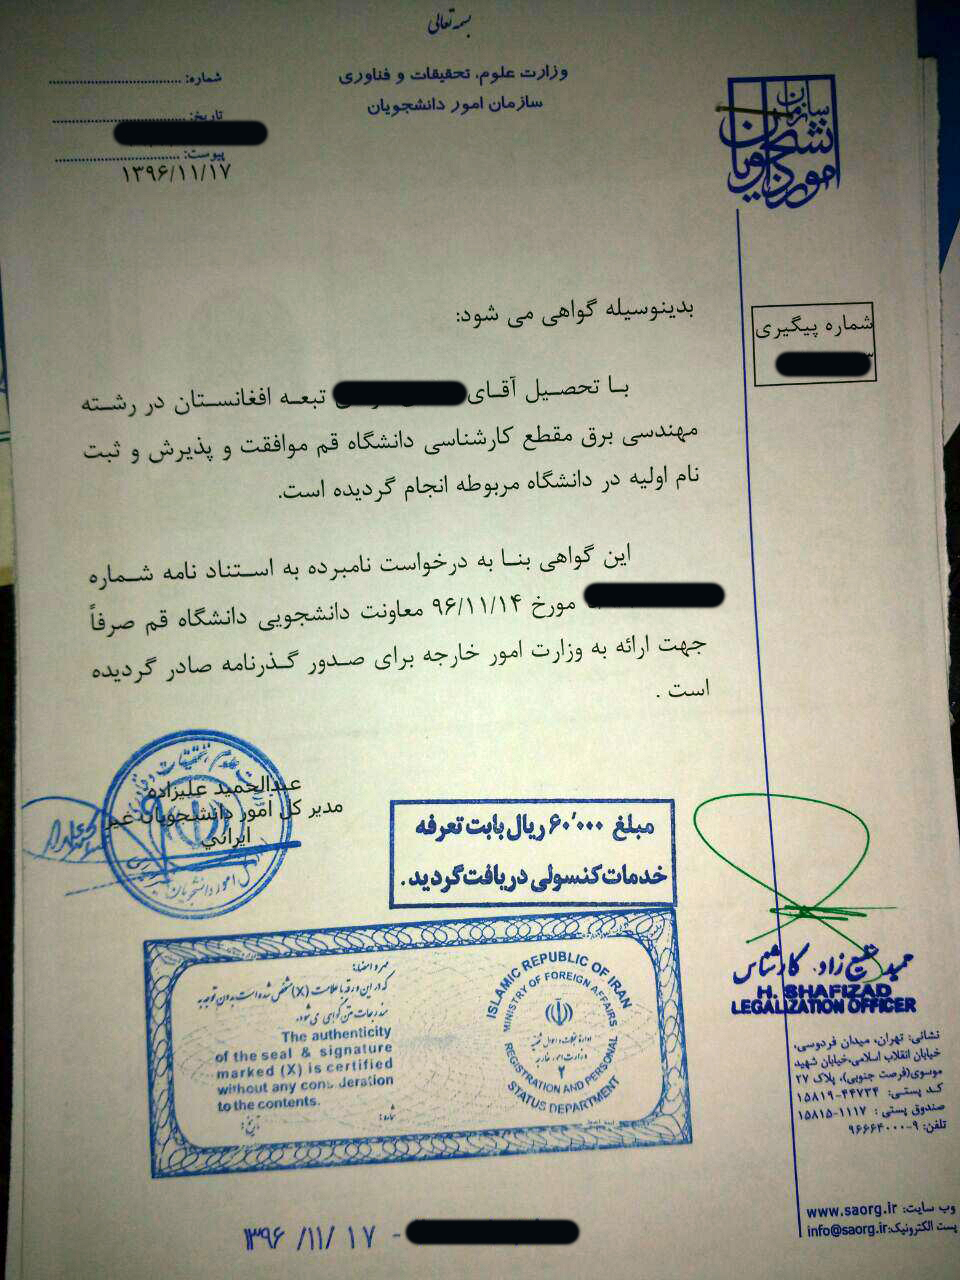 بسمه تعالی
وزارت علوم، تحقیقات و فناوری
سازمان امور دانشجویان
شماره:
تاریخ:
پیوست:
۱۳۹۶/۱۱/۱۷
سازمان امور دانشجویان
شماره پیگیری
بدینوسیله گواهی می شود:
با تحصیل آقای تبعه افغانستان در رشته
مهندسی برق مقطع کارشناسی دانشگاه قم موافقت و پذیرش و ثبت
نام اولیه در دانشگاه مربوطه انجام گردیده است.
این گواهی بنا به درخواست نامبرده به استناد نامه شماره
مورخ ۹۶/۱۱/۱۴ معاونت دانشجویی دانشگاه قم صرفاً
جهت ارائه به وزارت امور خارجه برای صدور گذرنامه صادر گردیده
است .
عبدالحمید علیزاده
مدیر کل امور دانشجویان غیر
ایرانی
مبلغ ۶۰٬۰۰۰ ریال بابت تعرفه
خدمات کنسولی دریافت گردید.
مهر و امضاء:
که در این ورقه با علامت (X) مشخص شده است بدون توجه به
مندرجات متن گواهی می شود.
The authenticity
of the seal & signature
marked (X) is certified
without any consideration
to the contents.
شماره:
تاریخ:
ISLAMIC REPUBLIC OF IRAN
MINISTRY OF FOREIGN AFFAIRS
وزارت امور خارجه
۲
REGISTRATION AND PERSONAL
STATUS DEPARTMENT
حمید شفیع زاد. کارشناس
H. SHAFIZAD
LEGALIZATION OFFICER
نشانی: تهران، میدان فردوسی،
خیابان انقلاب اسلامی،خیابان شهید
موسوی(فرصت جنوبی)، پلاک ۲۷
کد پستی: ۴۴۷۳۴-۱۵۸۱۹
صندوق پستی : ۱۱۱۷-۱۵۸۱۵
تلفن: ۹-۹۶۶۶۴۰۰۰
وب سایت: www.saorg.ir
پست الکترونیک:info@saorg.ir
۱۳۹۶/۱۱/۱۷ -